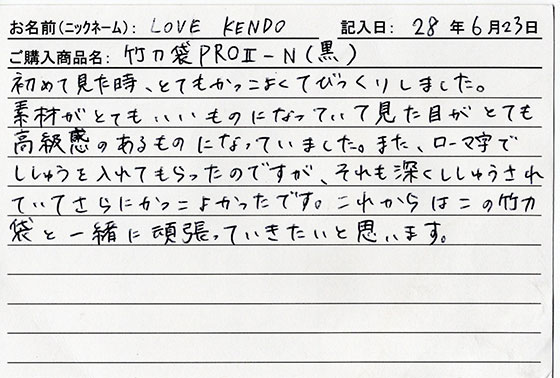 お名前(ニックネーム): LOVE KENDO 記入日: 28 年 6 月 23 日
ご購入商品名: 竹刀袋PROⅡ-N(黒)
初めて見た時、とてもかっこよくてびっくりしました。
素材がとてもいいものになっていて見た目がとても
高級感のあるものになっていました。また、ローマ字で
ししゅうを入れてもらったのですが、それも深くししゅうされ
ていてさらにかっこよかったです。これからはこの竹刀
袋と一緒に頑張っていきたいと思います。